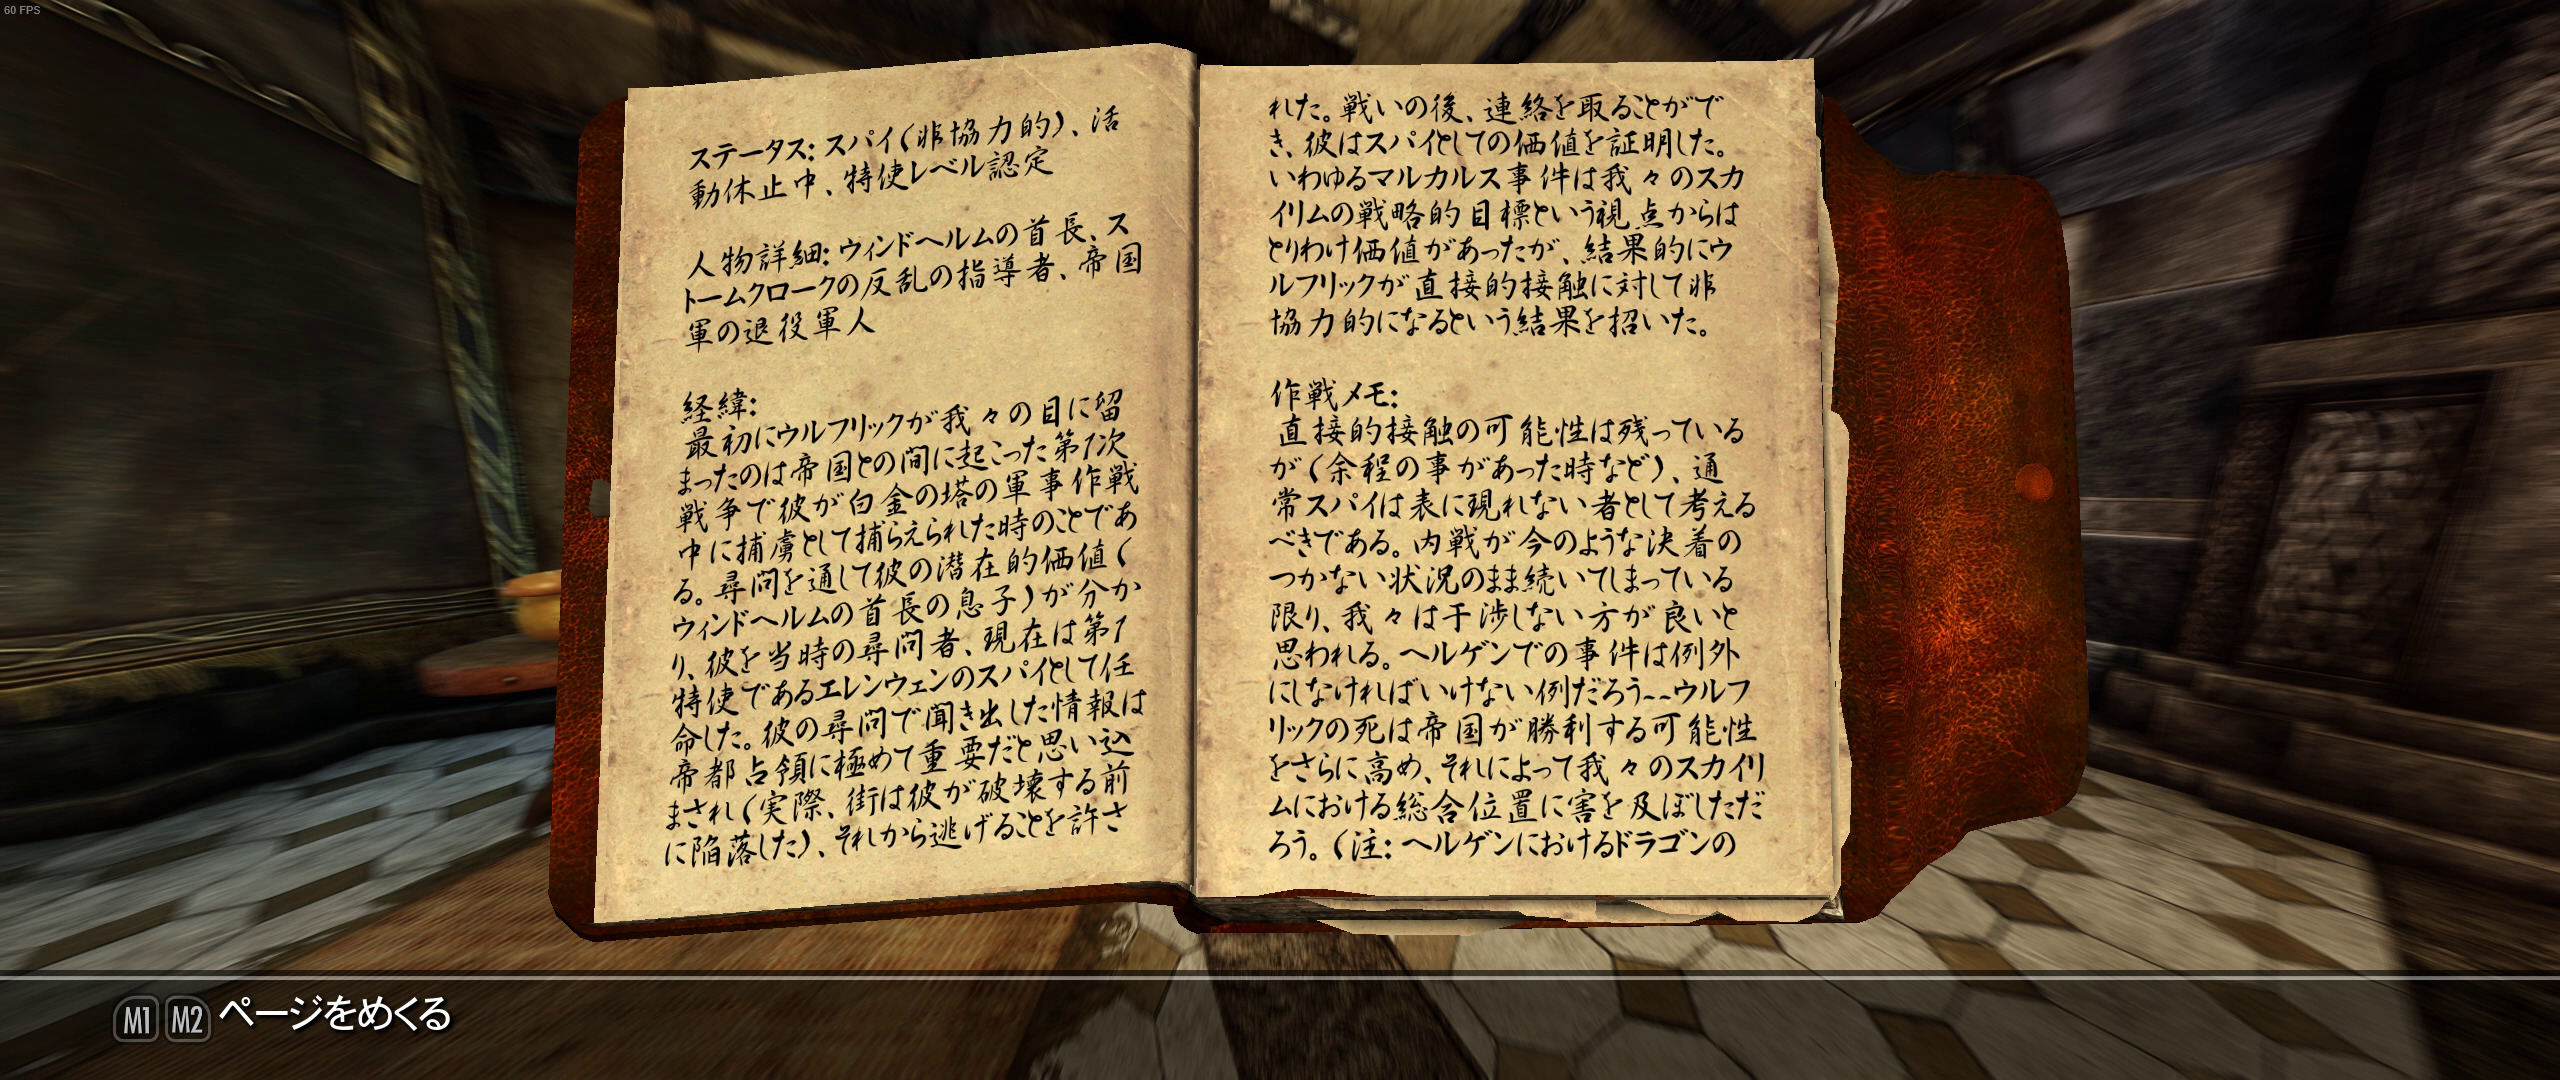 60 FPS
ステータス: スパイ(非協力的)、活
動休止中、特使レベル認定
人物詳細: ウィンドヘルムの首長、ス
トームクロークの反乱の指導者、帝国
軍の退役軍人
経緯:
最初にウルフリックが我々の目に留
まったのは帝国との間に起こった第1次
戦争で彼が白金の塔の軍事作戦
中に捕虜として捕らえられた時のことであ
る。尋問を通して彼の潜在的価値(
ウィンドヘルムの首長の息子)が分か
り、彼を当時の尋問者、現在は第1
特使であるエレンウェンのスパイとして任
命した。彼の尋問で聞き出した情報は
帝都占領に極めて重要だと思い込
まされ(実際、街は彼が破壊する前
に陥落した)、それから逃げることを許さ
れた。戦いの後、連絡を取ることがで
き、彼はスパイとしての価値を証明した。
いわゆるマルカルス事件は我々のスカ
イリムの戦略的目標という視点からは
とりわけ価値があったが、結果的にウ
ルフリックが直接的接触に対して非
協力的になるという結果を招いた。
作戦メモ:
直接的接触の可能性は残っている
が(余程の事があった時など)、通
常スパイは表に現れない者として考える
べきである。内戦が今のような決着の
つかない状況のまま続いてしまっている
限り、我々は干渉しない方が良いと
思われる。ヘルゲンでの事件は例外
にしなければいけない例だろう--ウルフ
リックの死は帝国が勝利する可能性
をさらに高め、それによって我々のスカイリ
ムにおける総合位置に害を及ぼしただ
ろう。(注: ヘルゲンにおけるドラゴンの
M1 M2 ページをめくる